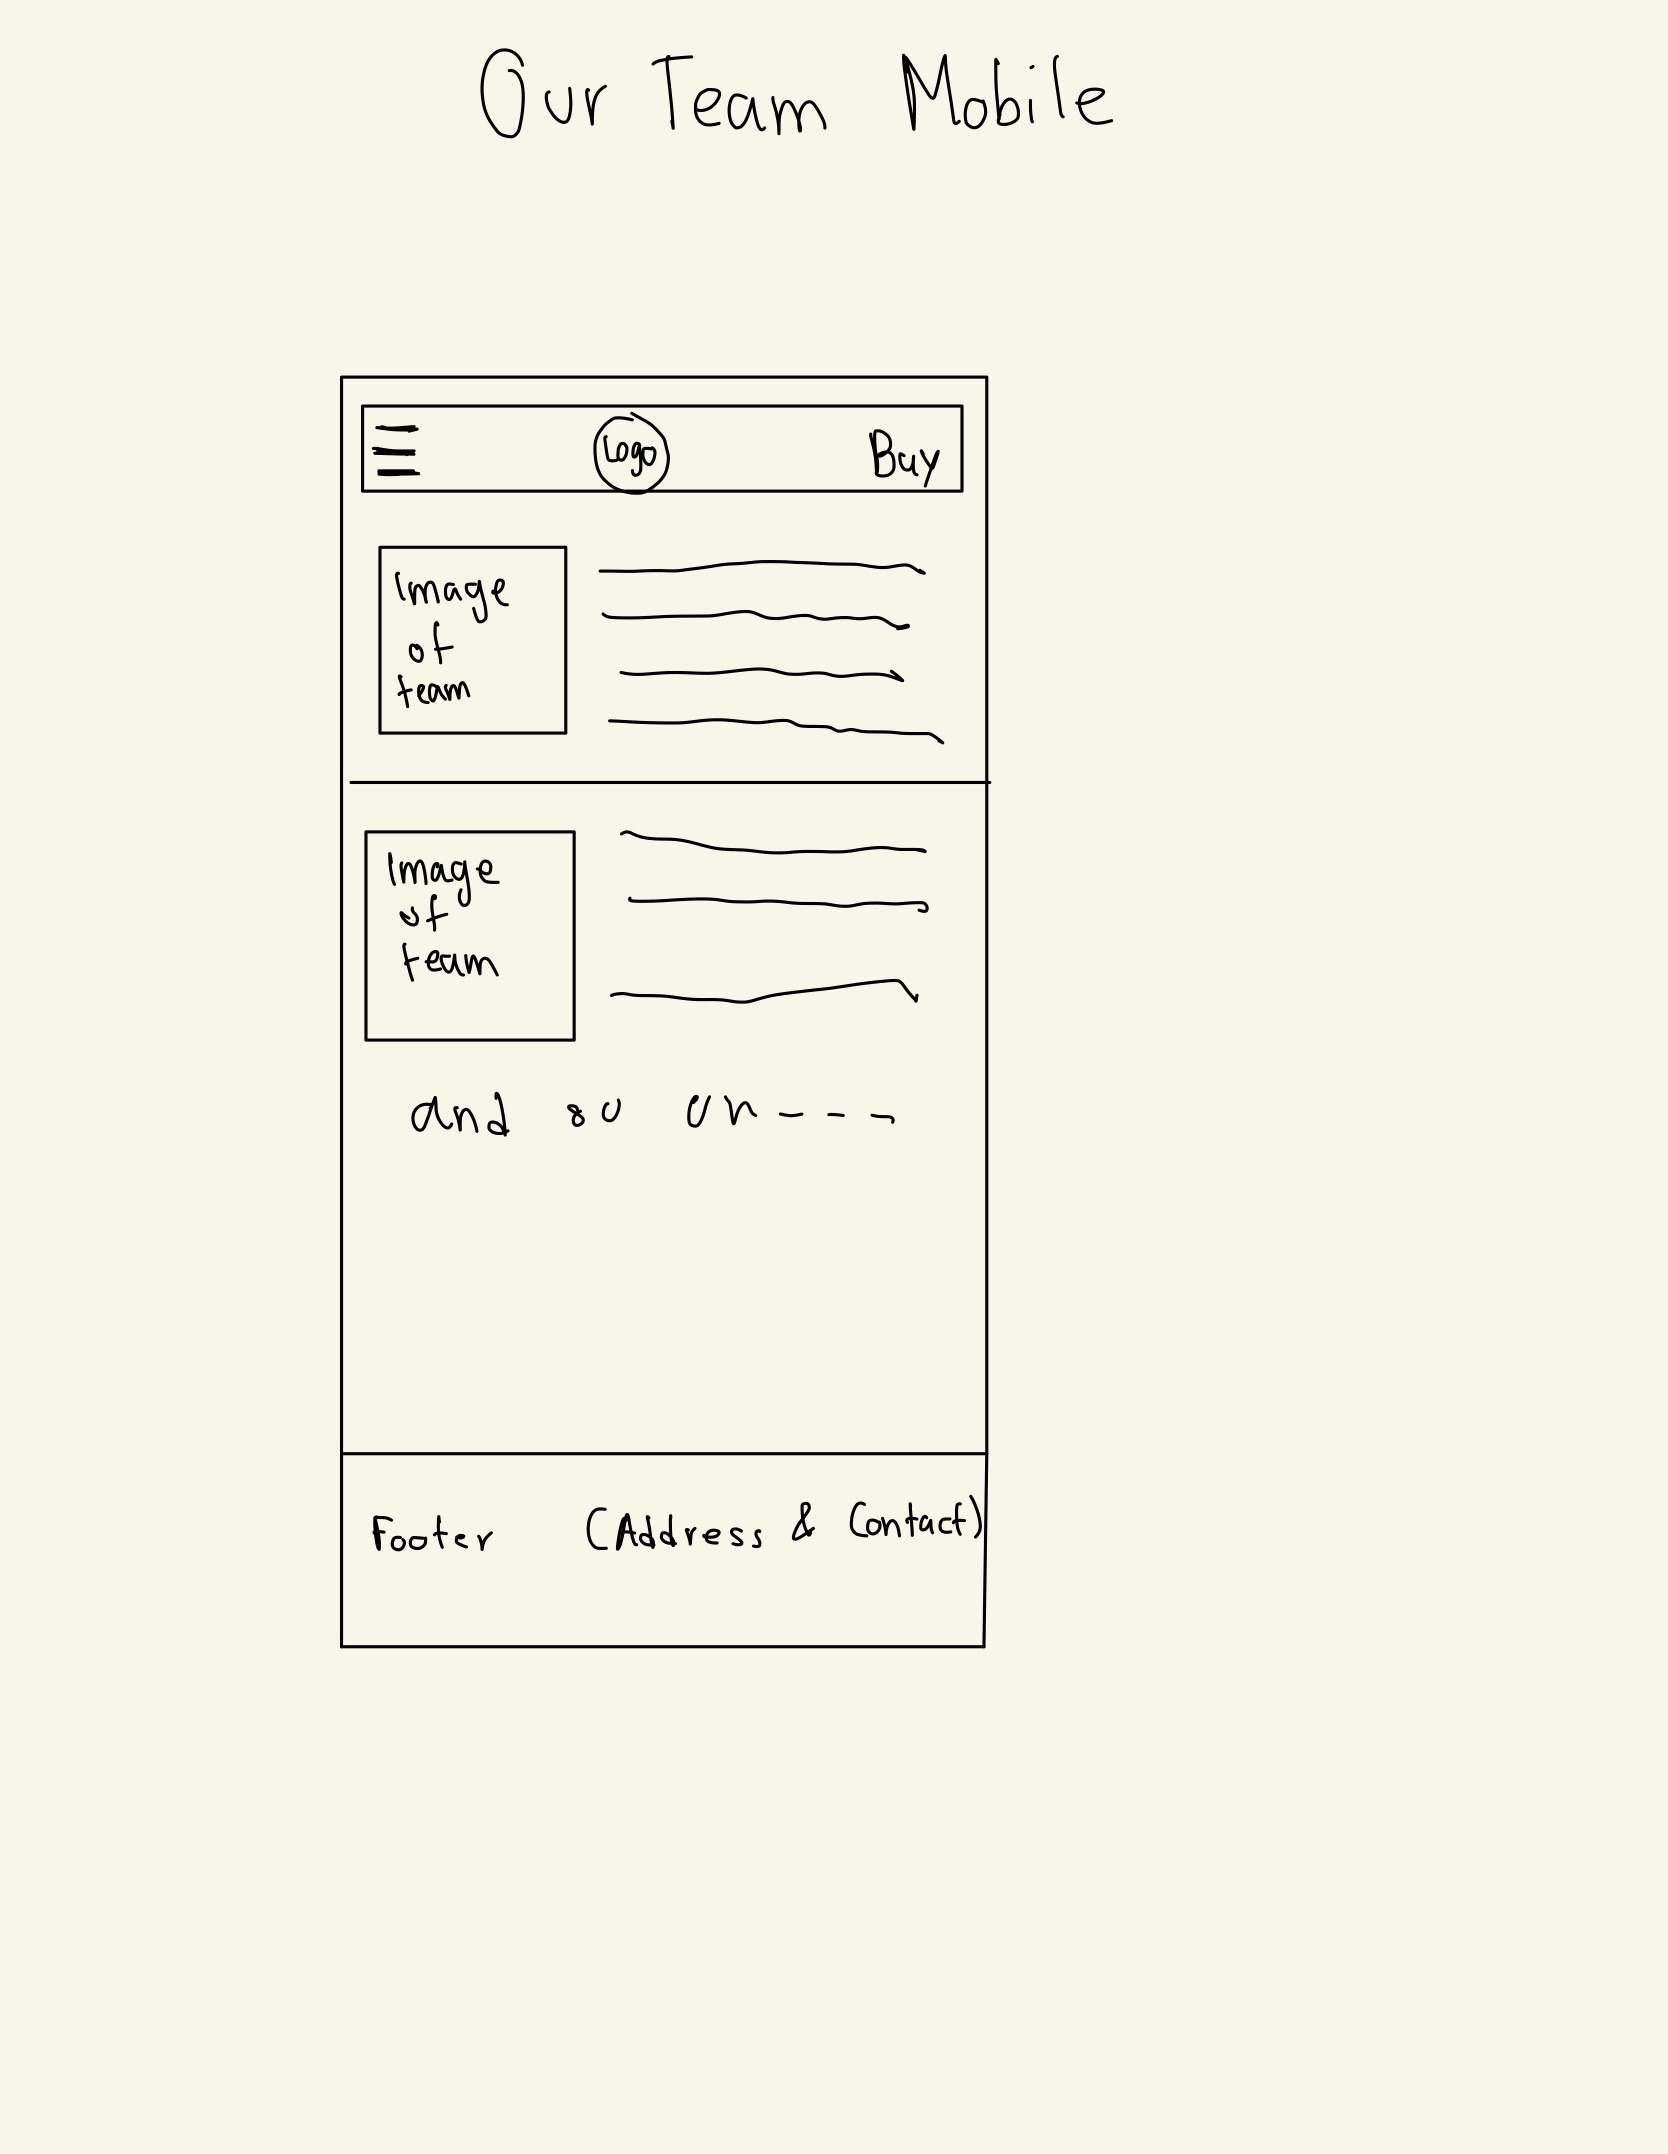 Our Team Mobile
Logo
Buy
Image
of
team
Image
of
team
and so on - - -
Footer (Address & Contact)